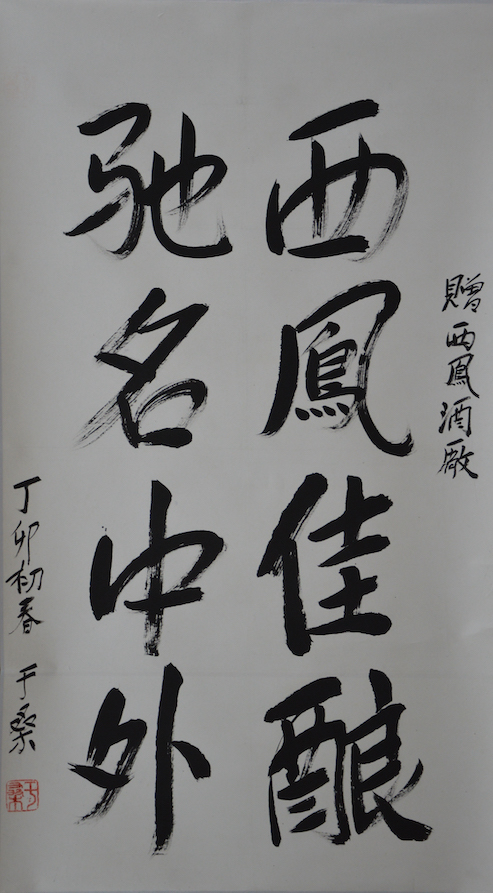 贈西鳳酒廠
西鳳佳酿
驰名中外
丁卯初春 于桑
于桑